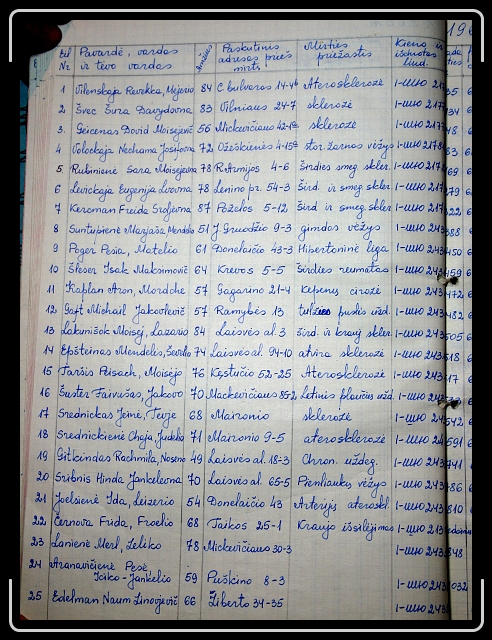 196
Eil Nr. Pavardė, vardas ir tėvo vardas Amžius Paskutinis adresas prieš mirtį Mirties priežastis Kieno ir išduotas liud.
1 Vilenskaja Revekka, Mejerio 84 C. bulvaras 14-4b Aterosklerozė I-ШЮ 217 35
2 Švec Sura Davydovna 83 Vilniaus 24-7 sklerozė I-ШЮ 217 34
3. Geicenas Dovid Moisejevič 56 Mickevičiaus 42-1a sklerozė I-ШЮ 217 48
4 Volockaja Nechama Josifovna 72 Ožeškienės 4-15a stor. žarnos vėžys I-ШЮ 217 83
5. Rubinienė Sara Moisejevna 78 R. Armijos 4-6 Širdies smeg. skler. I-ШЮ 217 69
6 Levickaja Eugenija Lvovna 78 Lenino pr. 54-3 Šird. ir smeg. skler. I-ШЮ 217 79
7 Kereman Freida Srolievna 87 Požėlos 5-12 Šird. ir smeg. skler. I-ШЮ 243 22
8 51 J. Gruodžio 9-3 gimdos vėžys I-ШЮ 243 388
9 Peger Pesia, Matelio 61 Donelaičio 43-3 Hibertoninė liga I-ШЮ 243 450
10 Šleser Isak Maksimovič 64 Krėvos 5-5 Širdies reumatas I-ШЮ 243 459
11 Kaplan Aron, Mordche 57 Gagarino 21-4 Kepenų cirozė I-ШЮ 243 472
12 Gaft Michail Jakovlevič 57 Ramybės 13 pūslės užd. I-ШЮ 243 482
13 Lakunišok Moisej, Lazario 84 Laisvės al. 3 Šird. ir krauj. skler. I-ШЮ 243 505
14 Epšteinas Mendelis, 74 Laisvės al. 94-10 atvira sklerozė I-ШЮ 243 518
15 Taršis Peisach, Moisėjo 76 Kęstučio 52-25 Aterosklerozė I-ШЮ 243 17
16 Šuster Faivušas, Jakovo 70 Mackevičiaus 85-2 Lėtinis plaučių užd. I-ШЮ 243
17 Srednickas Jeinė, Tevje 68 Maironio sklerozė I-ШЮ 243 542
18 Srednickienė Chaja, Judelio 71 Maironio 9-5 aterosklerozė I-ШЮ 243 591
19 Gitkindas Rachmila, Noseno 49 Laisvės al. 18-3 Chron. uždeg. I-ШЮ 243 741
20 Sribnis Hinda Jankelevna 70 Laisvės al. 65-5 Pienliaukų vėžys I-ШЮ 243 86
21 Joelsienė Ida, Leizerio 54 Donelaičio 43 Arterijų ateroskl. I-ШЮ 243 810
22 Černova Frida, Froelio 68 Taikos 25-1 Kraujo išsiliejimas I-ШЮ 243
23 Lanienė Merl, Leliko 78 Mickevičiaus 30-3 I-ШЮ 243 848
24 Aranavičienė Pesė,
Icik-Jankelio 59 Puškino 8-3 I-ШЮ 243 032
25 Edelman Naum Zinovjevič 66 Žiberto 34-35 I-ШЮ 243